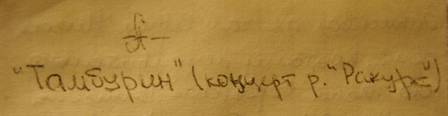 "Тамбурин" (концерт р. "Ракурс")